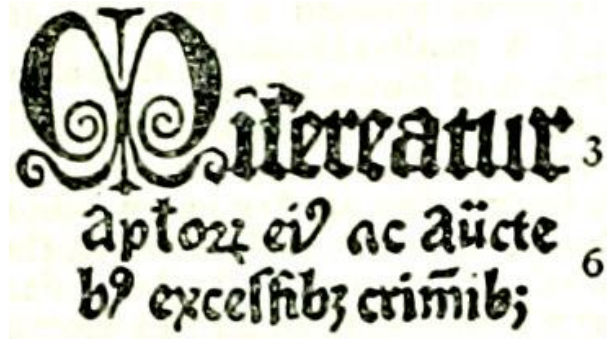 Miſereatur 3
aptoꝝ eiꝰ ac aücte
6
bꝰ exceſſibꝫ crim̄ib;